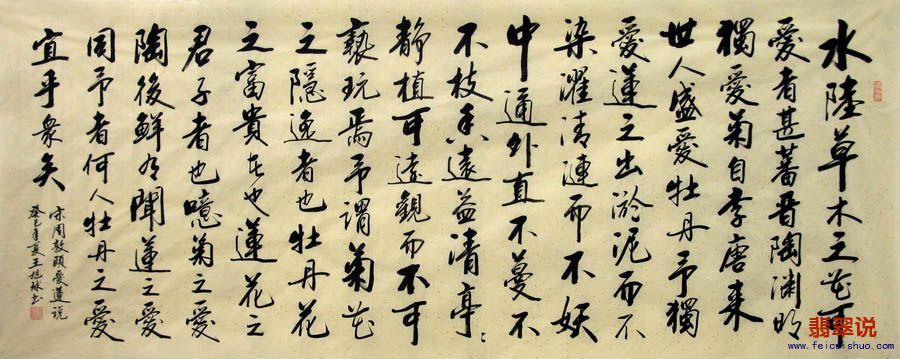 水陸草木之花可
愛者甚蕃晋陶渊明
獨愛菊自李唐来
世人盛愛牡丹予獨
愛蓮之出淤泥而不
染濯清漣而不妖
中通外直不蔓不
不枝香遠益清亭〻
静植可遠觀而不可
褻玩焉予謂菊花
之隱逸者也牡丹花
之富貴者也蓮花之
君子者也噫菊之愛
陶後鮮有聞蓮之愛
同予者何人牡丹之愛
宜乎衆矣
宋周敦頤愛蓮説
癸巳年夏王旭书
翡翠说
www.feicuishuo.com